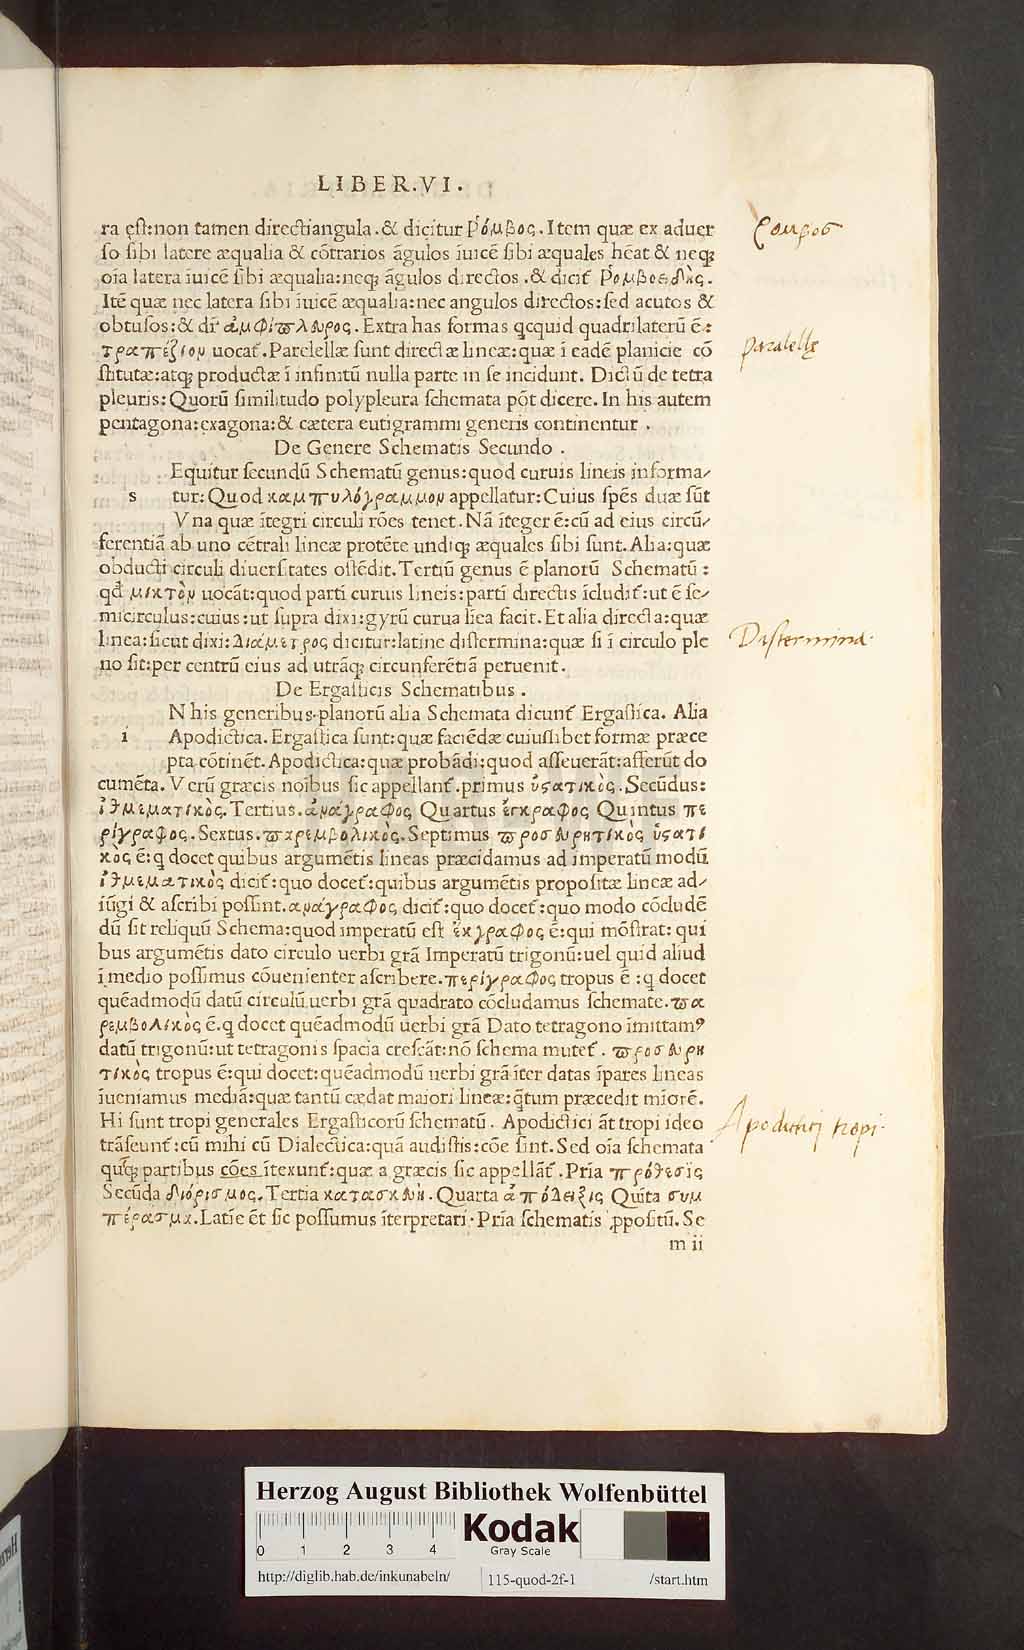 LIBER.VI.
ra ęst:non tamen directiangula.& dicitur ῥόμβος. Item quæ ex aduer
ρομβος
so sibi latere æqualia & cōtrarios āgulos īuicē sibi æquales hēat & neqꝫ
oīa latera īuicē sibi æqualia:neqꝫ āgulos directos.& dicit᷑ ῥομβοειδὴς.
Itē quæ nec latera sibi īuicē æqualia:nec angulos directos:sed acutos &
obtusos:& dr̄ ἀμφίπλευρος. Extra has formas qcquid quadrilaterū ē:
paralellę
τραπέζιον uocat᷑. Parelellæ sunt directæ lineæ:quæ ī eadē planicie cō
stitutæ:atqꝫ productæ ī infinitū nulla parte in se incidunt. Dictū de tetra
pleuris:Quorū similitudo polypleura schemata pōt dicere. In his autem
pentagona:exagona:& cætera eutigrammi generis continentur.
De Genere Schematis Secundo.
Equitur secundū Schematū genus:quod curuis lineis informa/
s tur:Quod καμπυλόγραμμον appellatur:Cuius spēs duæ sūt
Vna quæ ītegri circuli rōes tenet. Nā īteger ē:cū ad eius circū/
ferentiā ab uno cētrali lineæ protēte undiqꝫ æquales sibi sunt. Alia:quæ
obducti circuli diuersitates ostēdit. Tertiū genus ē planorū Schematū:
qđ μικτὸν uocāt:quod partī curuis lineis:partī directis īcludit᷑:ut ē se/
micirculus:cuius:ut supra dixi:gyrū curua līea facit. Et alia directa:quæ
linea:sicut dixi:Διάμετρος dicitur:latine distermina:quæ si ī circulo ple
Distermina.
no sit:per centrū eius ad utrāqꝫ circunferētiā peruenit.
De Ergasticis Schematibus.
N his generibus.planorū alia Schemata dicunt᷑ Ergastica. Alia
i Apodictica. Ergastica sunt:quæ faciēdæ cuiuslibet formæ præce
pta cōtinēt. Apodictica:quæ probādi:quod asseuerāt:afferūt do
cumēta. Verū græcis noībus sic appellant᷑.primus ὑσατικὸς. Secūdus:
ἰθμεματικὸς. Tertius.ἀναγραφος Quartus ἐγκραφος Quintus πε
ρίγραφος. Sextus.παρεμβολικὸς. Septimus προσευρητικὸς ὑσατι
κὸς ē:q docet quibus argumētis lineas præcidamus ad imperatū modū
ἰθμεματικὸς dicit᷑:quo docet᷑:quibus argumētis propositæ lineæ ad/
iūgi & ascribi possint.αναγραφος dicit᷑:quo docet᷑:quo modo cōcludē
dū sit reliquū Schema:quod imperatū est ἐκγραφος ē:qui mōstrat:qui
bus argumētis dato circulo uerbi grā Imperatū trigonū:uel quid aliud
ī medio possimus cōuenienter ascribere.περίγραφος tropus ē:q docet
quēadmodū datū circulū uerbi grā quadrato cōcludamus schemate.πα
ρεμβολικὸς ē.q docet quēadmodū uerbi grā Dato tetragono īmittamꝰ
datū trigonū:ut tetragonis spacia crescāt:nō schema mutet᷑. προσευρη
τικὸς tropus ē:qui docet:quēadmodū uerbi grā īter datas īpares lineas
īueniamus mediā:quæ tantū cædat maiori lineæ:q̄tum præcedit miorē.
Hi sunt tropi generales Ergasticorū schematū. Apodictici āt tropi ideo
Apodictici tropi.
trāseunt᷑:cū mihi cū Dialectica:quā audistis:cōe sint. Sed oīa schemata
quīqꝫ partibus cōes ītexunt᷑:quæ a græcis sic appellāt᷑. Prīa πρόθεσις
Secūda διόρισμος. Tertia κατασκευη. Quarta ἀπόδειξις Quīta συμ
πέρασμα. Latīe ēt sic possumus īterpretari. Prīa schematis ꝓpositū. Se
m ii
Herzog August Bibliothek Wolfenbüttel
0 1 2 3 4
Kodak
Gray Scale
http://diglib.hab.de/inkunabeln/ 115-quod-2f-1 /start.htm